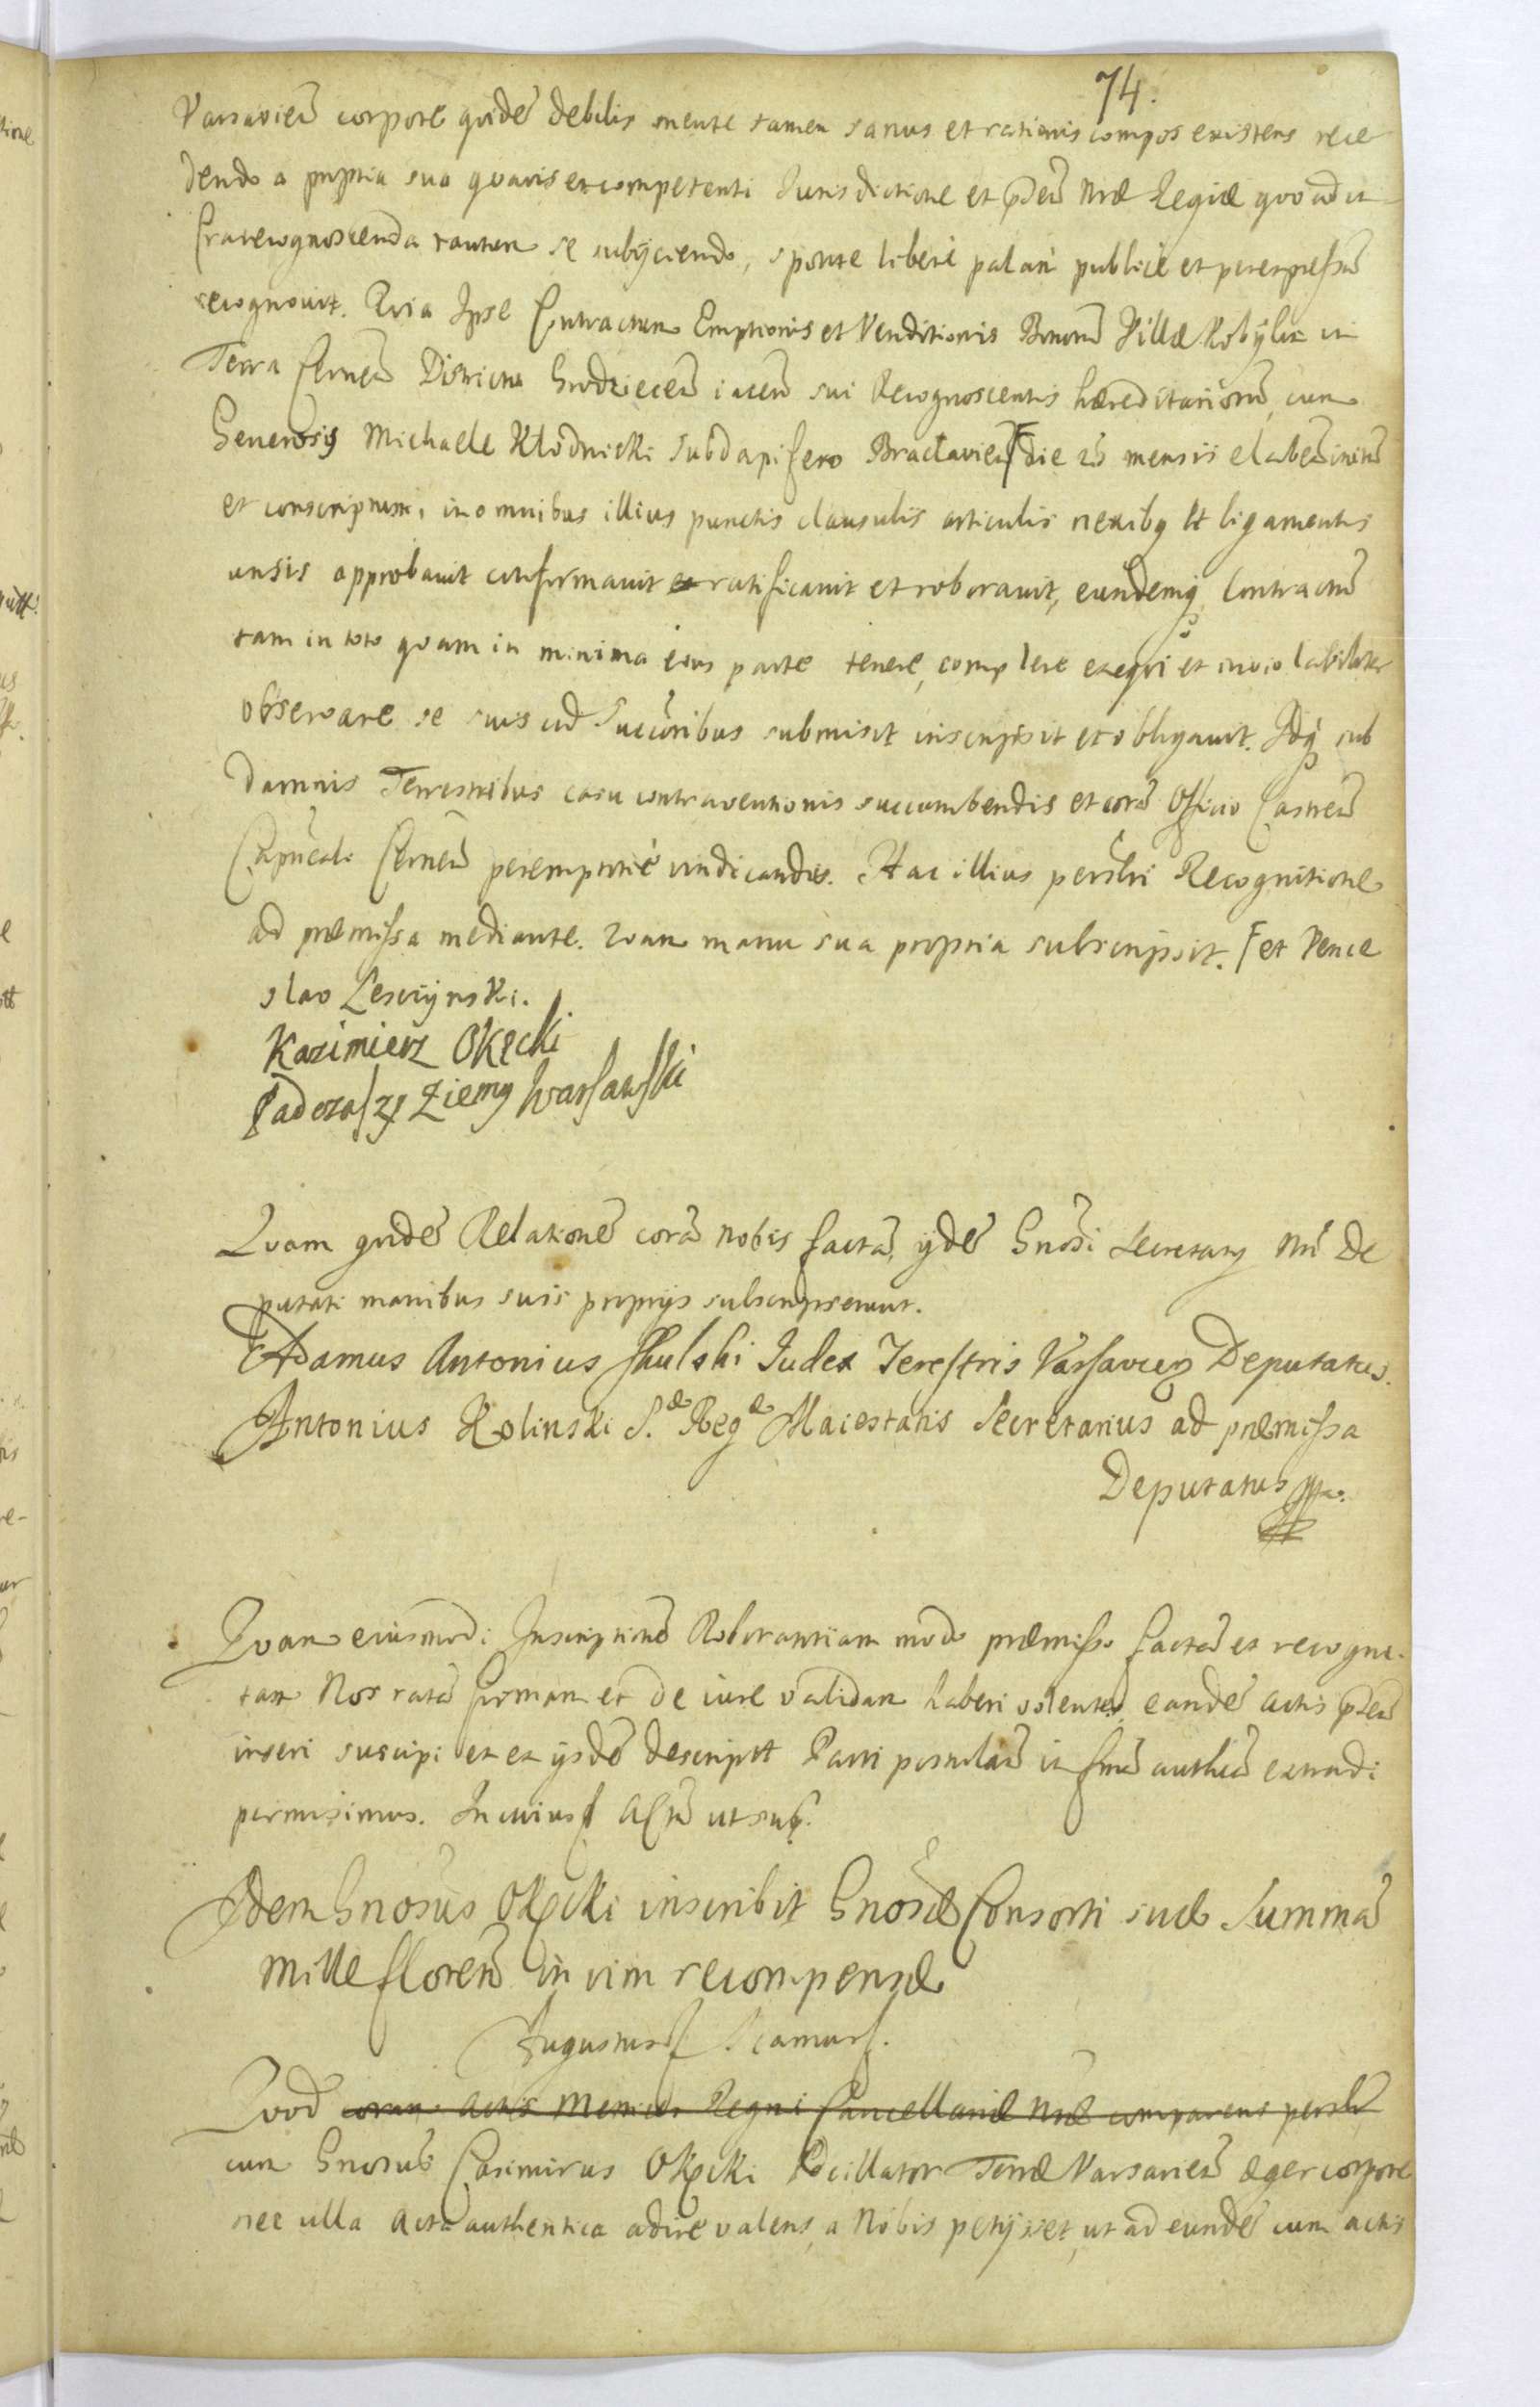 74.
Varsavien̄ corpore quidē debilis mente tamen sanus et rationis compos existens rece
dendo a propria sua quavis et competenti Jurisdictione et p̄sen̄ Nrae Regiae quoad in
fra recognoscenda tantum se subijciendo, sponte libere palam publice et per expressū
recognovit. Quia Ipse Contractum Emptionis et Venditionis Bonorū Villae Kobylin in
Terra Cernen̄ Districtu Grodziecen̄ iacen̄ sui Recognoscentis haereditariorū, cum
Generosis Michaele Kłodnicki Subdapifero Braclavien̄ Ⲅ die 25 mensis elaben̄ initū
et conscriptum, in omnibus illius punctis clausulis articulis nexibq et ligamentis
unsis approbavit confirmavit et ratificavit et roboravit, eundemq Contractū
tam in toto quam in minima eius parte tenere, complere exequi et inviolabiliter
observare se suis cū Succ̄oribus submisit inscripsit et obligavit. Idq sub
damnis Terrestribus casu contraventionis succumbendis et corā Officio Castren̄
Cap̄neali Cernen̄ peremptorie vindicandis. Hac illius persli Recognitione
ad praemissa mediante. quam manu sua propria subscripsit. Ⲅ et Vence
slao Lesczynski.
Kazimierz Okęcki
Podczaszy Ziemy Warszawski
Quam quidē Relationē corā nobis factā, ijdē Gn̄osi Secretarij Nri De
putati manibus suis proprijs subscripserunt.
Adamus Antonius Skulski Iudex Terestris Varsavien̄ Deputatus.
Antonius Rolinski S.ae Regae Maiestatis Secretarius ad praemissa
Deputatus
Quam eiusmodi Inscriptionē Roborantiam modo praemisso factā et recogni-
tam Nos ratā firmam et de iure validam haberi volentes, eandē actis p̄sen̄
inseri suscipi et ex ijsdē descriptt Parti postulan̄ in formā authen̄ extradi
permisimus. In cuius Actū ut sup.
Idem Gnosus Okęcki inscribit Gnosae Consorti suae Summā
mille florenū in vim recompensae
Augustus Scamus.
Quod coram Actis Metrices Regni Cancellariae Nrae comparens persli
cum Gnosus Casimirus Okęcki Pocillator Terrae Varsavien̄ aeger corpore
nec ulla acta authentica adire valens, a Nobis petijsset, ut ad eundē cum actis